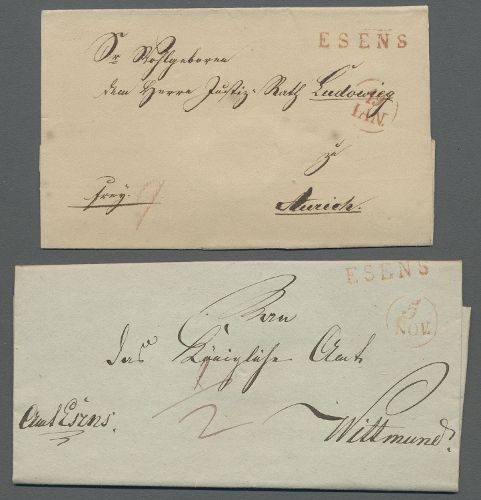 ESENS
Sr Wohlgeboren
dem Herrn Justiz-Rath Ludowieg
19
IAN.
zu
frey.
Aurich.
ESENS
5
NOV.
An
das Königliche Amt
1/2
Amt Esens.
Wittmund.